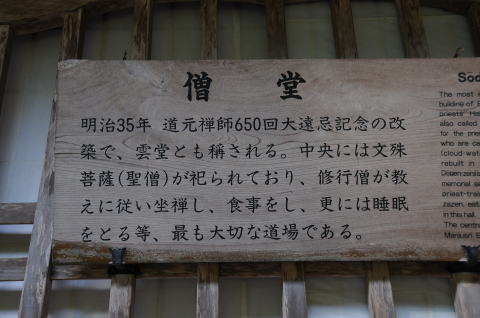 僧堂
明治35年 道元禅師650回大遠忌記念の改
築で、雲堂とも称される。中央には文殊
菩薩(聖僧)が祀られており、修行僧が教
えに従い坐禅し、食事をし、更には睡眠
をとる等、最も大切な道場である。
The most
building of
priests. Ha
also called
for the
who are ca
(cloud-wat
rebuilt in
Degenzenji
memorial se
priest-trai
zazen, eat
in this hall.
The centra
Manjusri